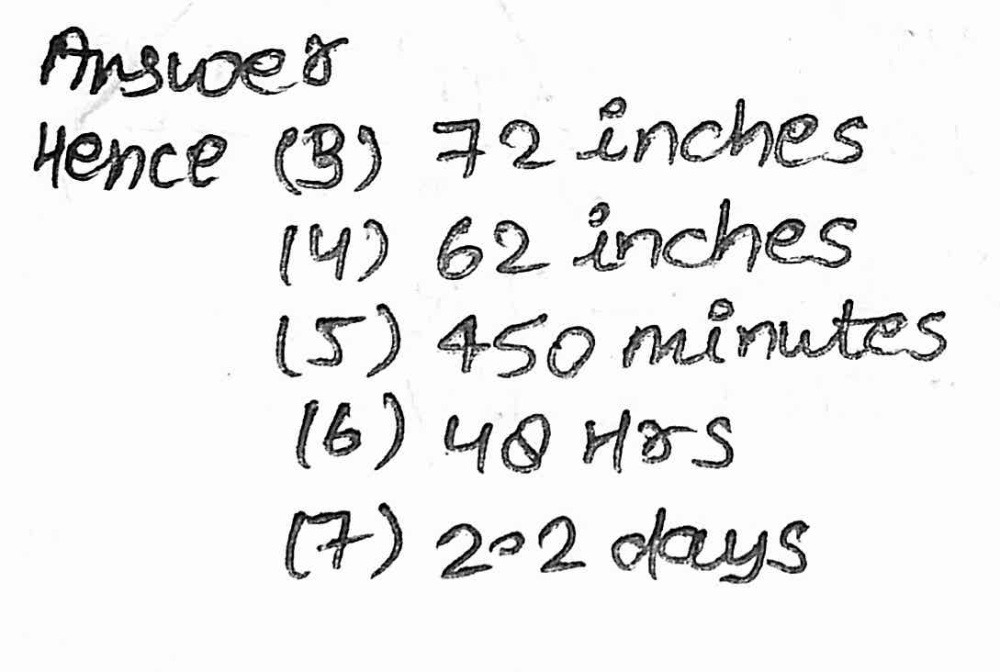 Answer
Hence (3) 72 inches
(4) 62 inches
(5) 450 minutes
(6) 48 Hrs
(7) 2.2 days